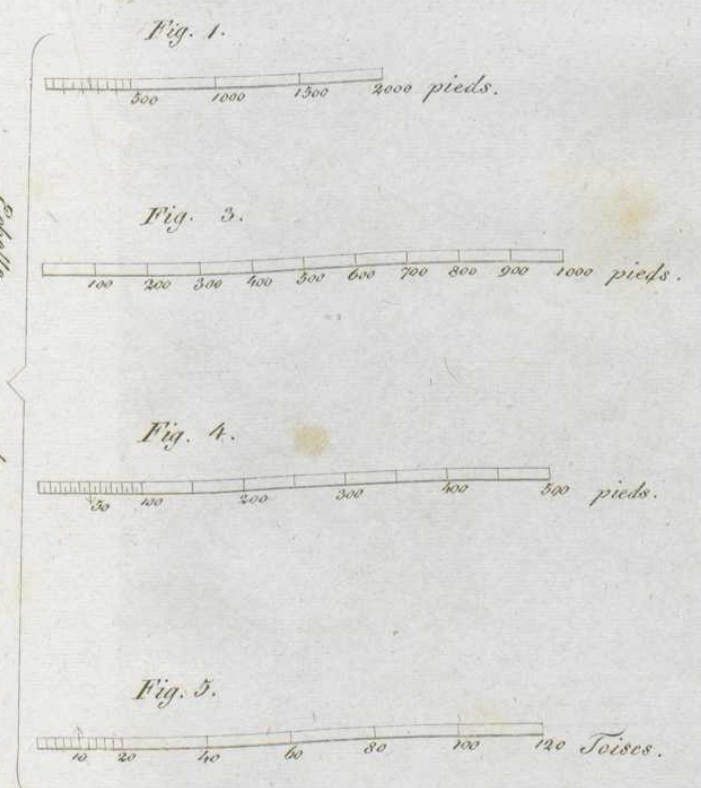 Fig. 1.
500 1000 1500 2000 pieds.
Fig. 3.
100 200 300 400 500 600 700 800 900 1000 pieds.
Fig. 4.
50 100 200 300 400 500 pieds.
Fig. 5.
10 20 40 60 80 100 120 Toises.